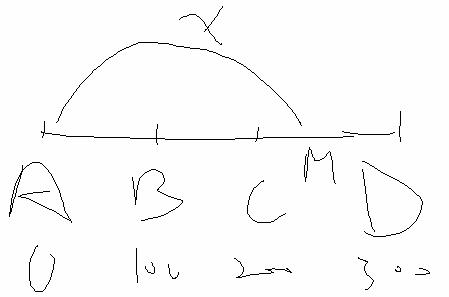 x
M
A B C D
0 100 200 300